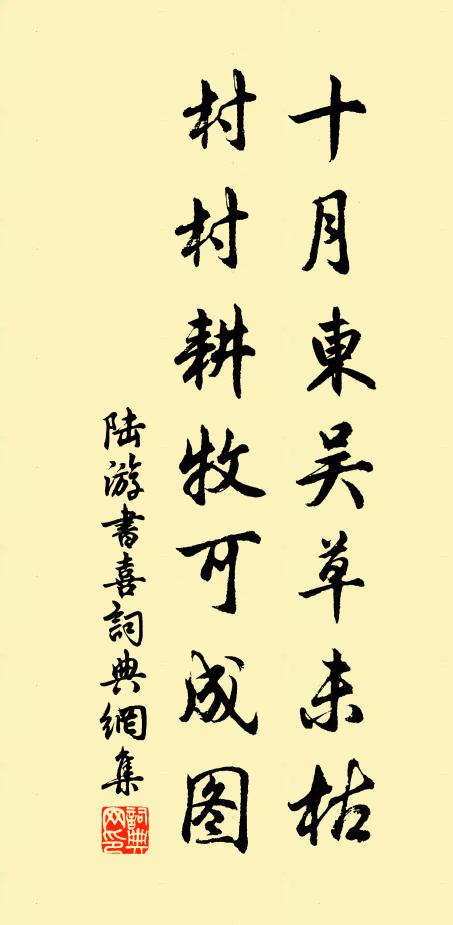 十月東吴草未枯
村村耕牧可成图
陆游書喜詞典網集
詞典网印